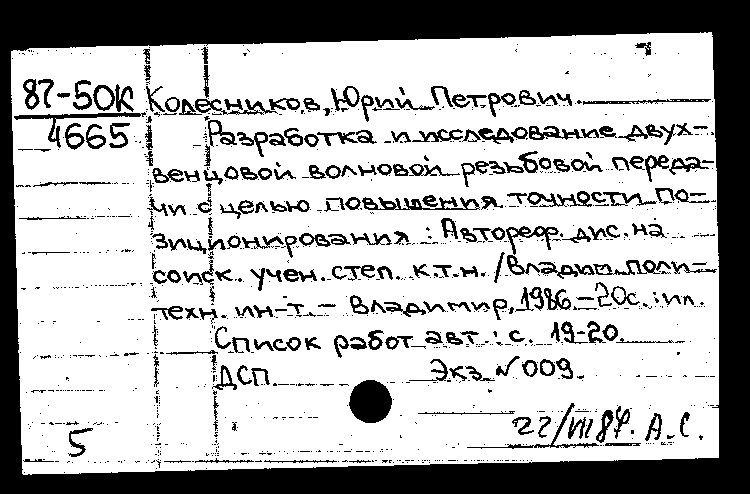 87-50К Колесников, Юрий Петрович.
4665 Разработка и исследование двух-
венцовой волновой резьбовой переда-
чи с целью повышения точности по-
зиционирования : Автореф. дис. на
соиск. учен. степ. к.т.н. /Владим. поли-
техн. ин-т. - Владимир, 1986.-20с. : ил.
Список работ авт.: с. 19-20.
ДСП. Экз. № 009.
5 А.С.